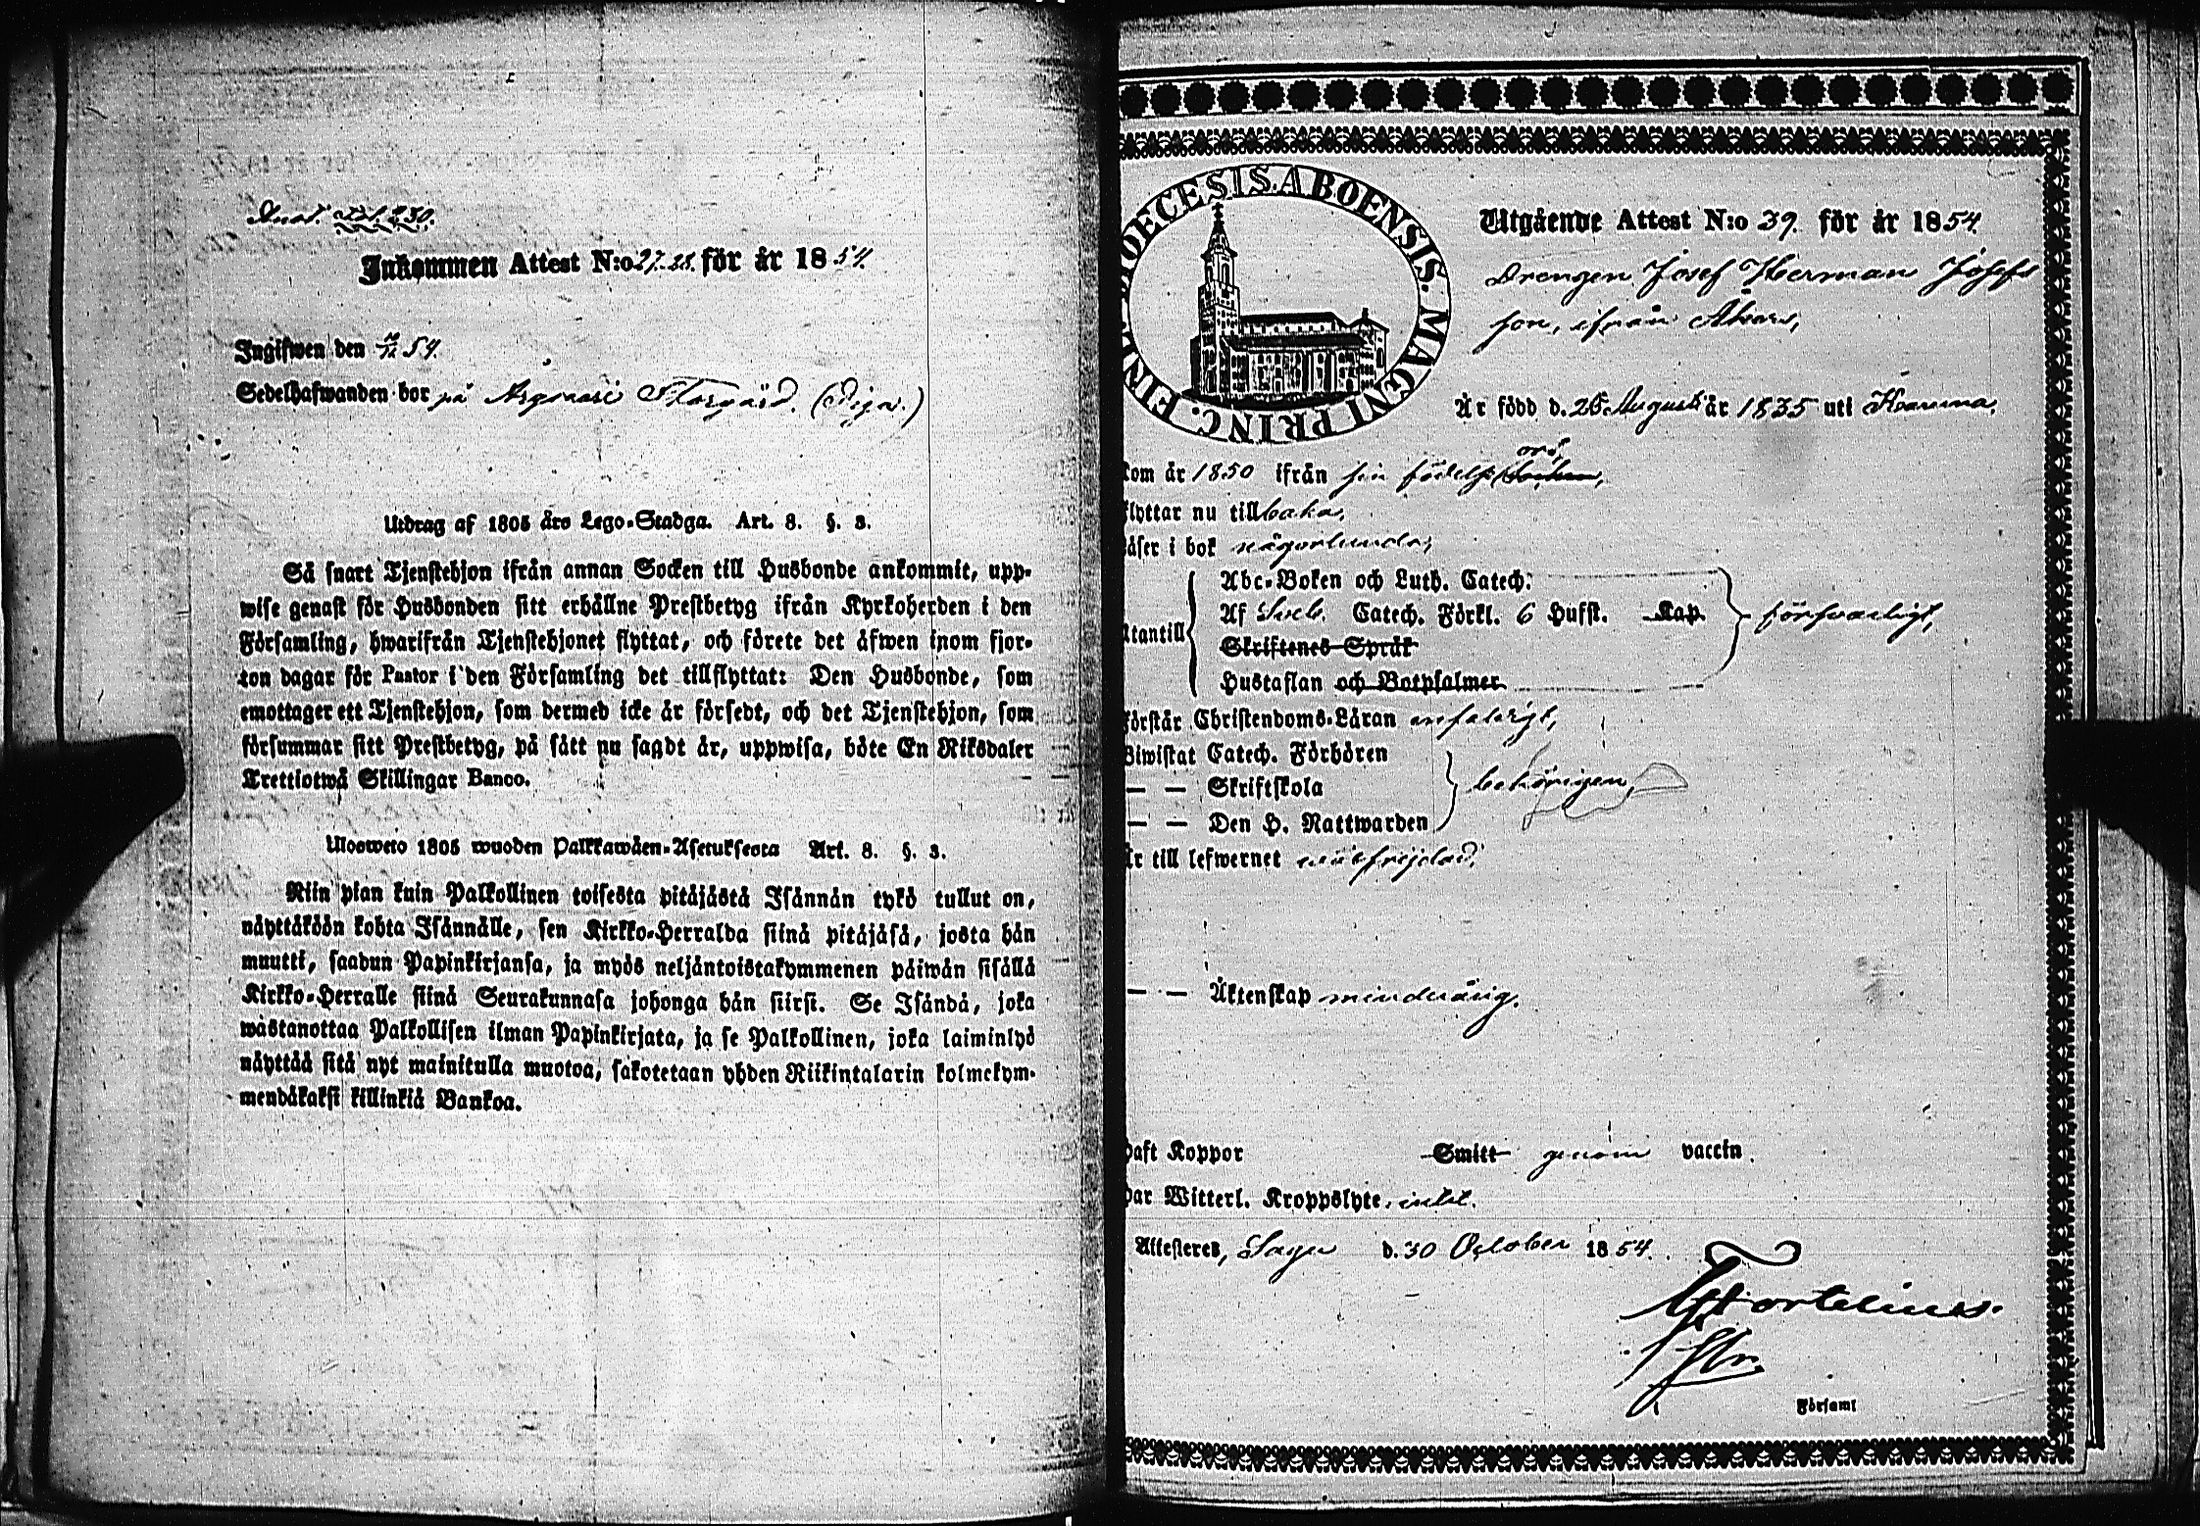 Inkommen Attest N:o 27.28. för år 1854.
Ingifwen den 54.
Sedelhafwanden bor på Storgård. (Piga.)
Utdrag af 1805 års Lego-Stadga. Art. 8. §. 3.
Så snart Tjenstehjon ifrån annan Socken till Husbonde ankommit, upp-
wise genast för Husbonden sitt erhållne Prestbetyg ifrån Kyrkoherden i den
Församling, hwarifrån Tjenstehjonet flyttat, och förete det äfwen inom fjor-
ton dagar för Pastor i den Församling det tillflyttat: Den Husbonde, som
emottager ett Tjenstehjon, som dermed icke är försedt, och det Tjenstehjon, som
försummar sitt Prestbetyg, på sätt nu sagdt är, uppwisa, böte En Riksdaler
Trettiotwå Skillingar Banco.
Ulosweto 1805 wuoden Palkkawäen-Asetuksesta Art. 8. §. 3.
Niin pian kuin Palkollinen toisesta pitäjästä Isännän tykö tullut on,
näyttäköön kohta Isännälle, sen Kirkko-Herralda siinä pitäjäsä, josta hän
muutti, saadun Papinkirjansa, ja myös neljäntoistakymmenen päiwän sisällä
Kirkko-Herralle siinä Seurakunnasa johonga hän siirsi. Se Isändä, joka
wastanottaa Palkollisen ilman Papinkirjata, ja se Palkollinen, joka laiminlyö
näyttää sitä nyt mainitulla muotoa, sakotetaan yhden Riikintalarin kolmekym-
mendäkaksi killinkiä Bankoa.
DIOECESIS ABOENSIS. MAGNI PRINC. FINL.
Utgående Attest N:o 39. för år 1854.
Drengen Josef Herman Josefs
son, ifrån
Är född d. 26 Augusti år 1835 uti Karuna,
kom år 1850 ifrån sin födelse ort,
flyttar nu tillbaka,
läser i bok någorlunda,
Abc-Boken och Luth. Catech.
Af Sveb. Catech. Förkl. 6 Hufst. Kap.
utantill försvarligt,
Skriftenes Språk
Hustaflan och Botpsalmer
förstår Christendoms-Läran enfaldigt,
Biwistat Catech. Förhören
— — Skriftskola behörigen,
— — Den H. Nattwarden
är till lefwernet wälfrejdad.
— — Äktenskap minderårig.
Haft Koppor Smitt genom vaccin.
har Witterl. Kroppslyte, intet.
Attesteres, Sagu d. 30 October 1854.
Församl